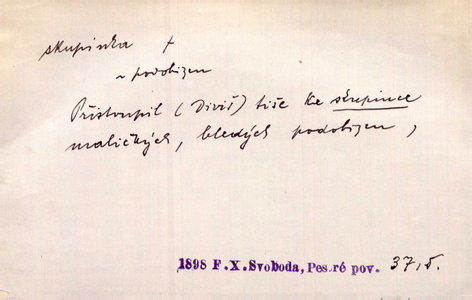 skupinka f
~ podobizen
Přistoupil (Diviš) tiše ke skupince
maličkých, bledých podobizen,
1898 F.X.Svoboda, Pes.ré pov. 37,5.